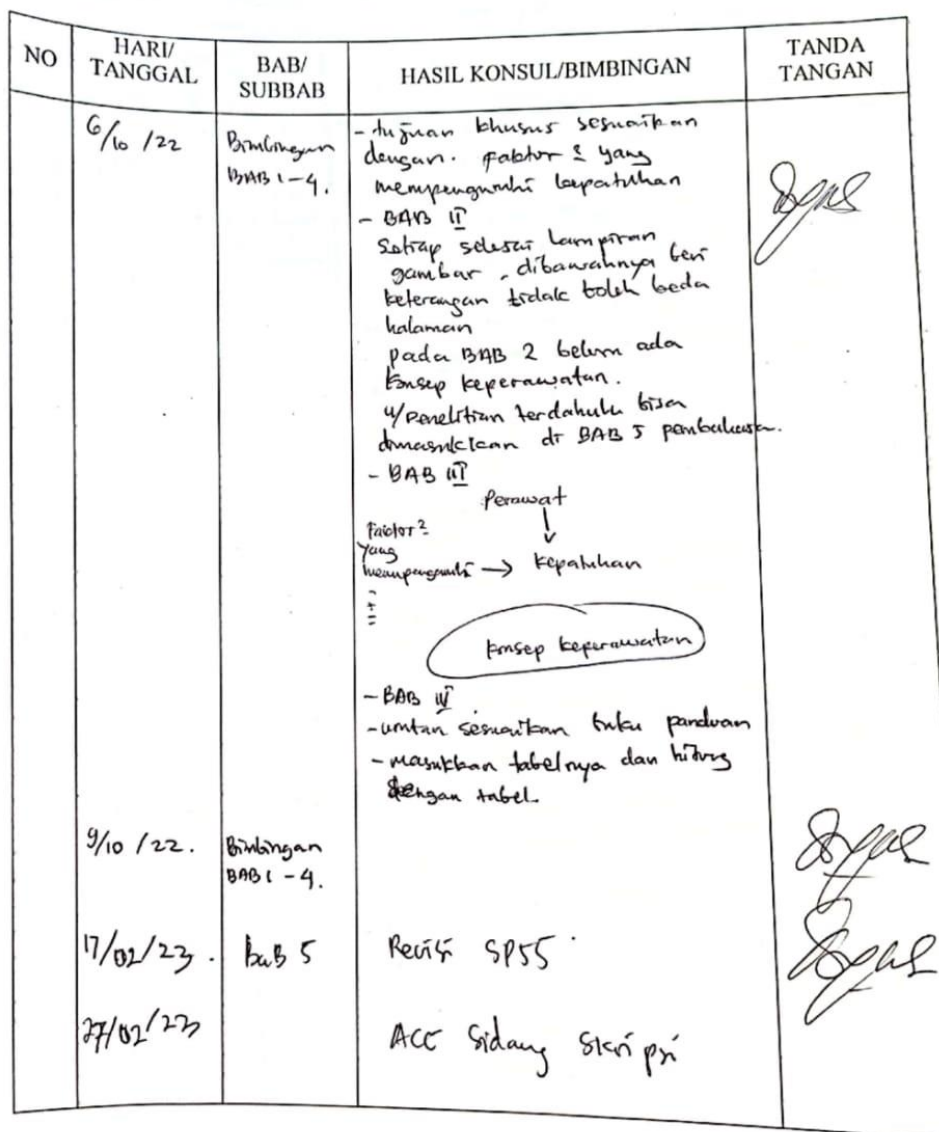 NO HARI/ TANGGAL BAB/ SUBBAB HASIL KONSUL/BIMBINGAN TANDA TANGAN
6/10 /22 Bimbingan BAB 1-4. - tujuan khusus sesuaikan
dengan. faktor 2 yang
mempengaruhi kepatuhan
- BAB II
Setiap selesai Lampiran
gambar, dibawahnya beri
keterangan tidak boleh beda
halaman
pada BAB 2 belum ada
Konsep keperawatan.
u/ Penelitian terdahulu bisa
dimasukkan di BAB 5 pembahasan.
- BAB III
Perawat
Faktor 2
yang
mempengaruhi → Kepatuhan
Konsep keperawatan
- BAB IV
- urutan sesuaikan buku panduan
- masukkan tabelnya dan hitung
dengan tabel.
9/10 /22. Bimbingan BAB 1-4.
17/02/23. BaB 5 Revisi SPSS
27/02/23 ACC Sidang Skripsi